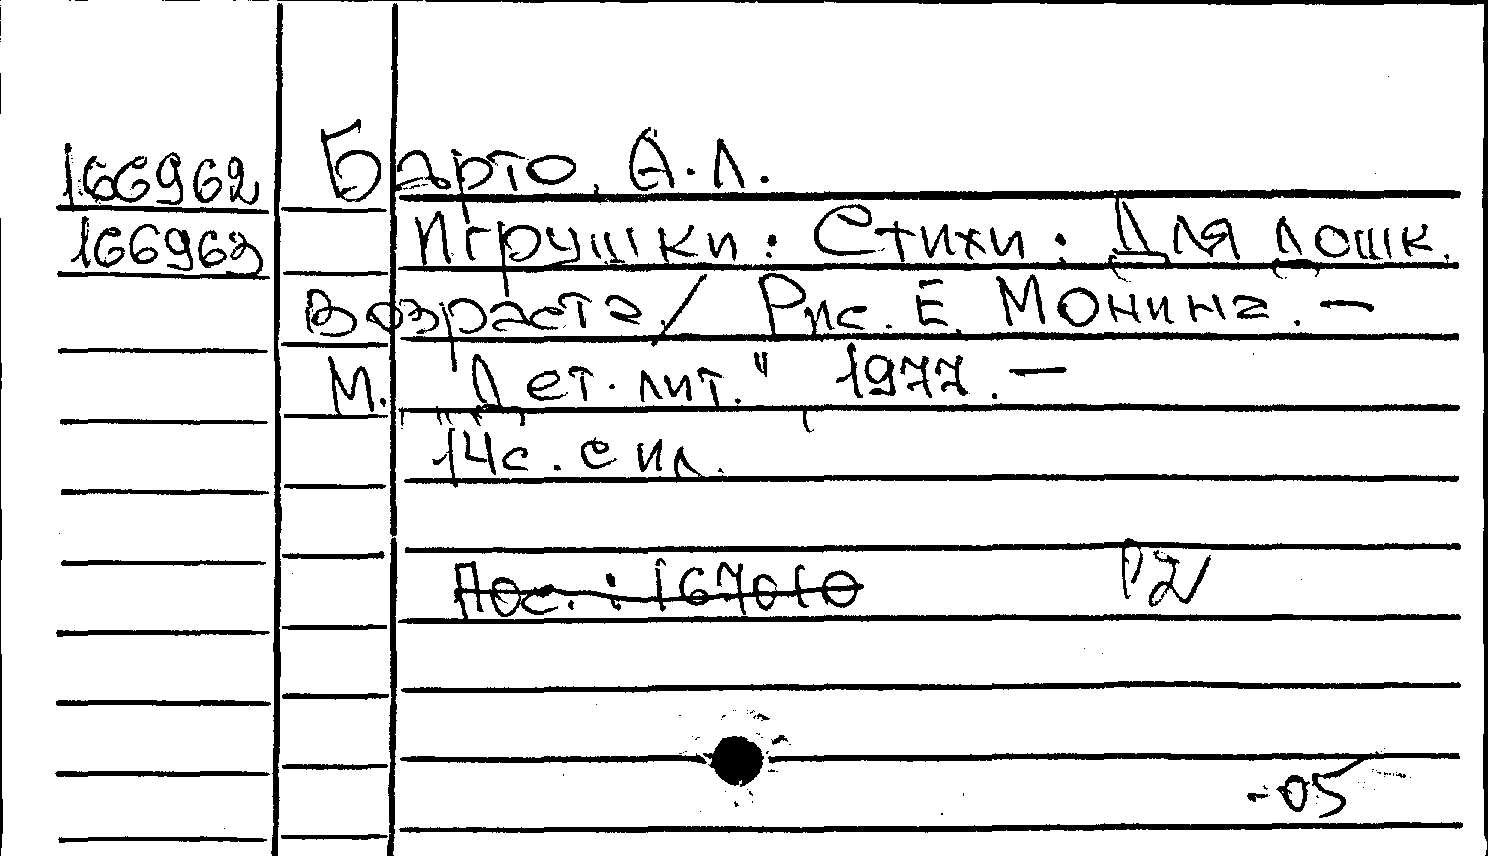 166962 Барто, А.Л.
166963 Игрушки: Стихи: Для дошк.
возраста / Рис. Е. Монина. —
М. "Дет. лит." 1977. —
14с. с ил.
Пос.: 167010 Р2
-05